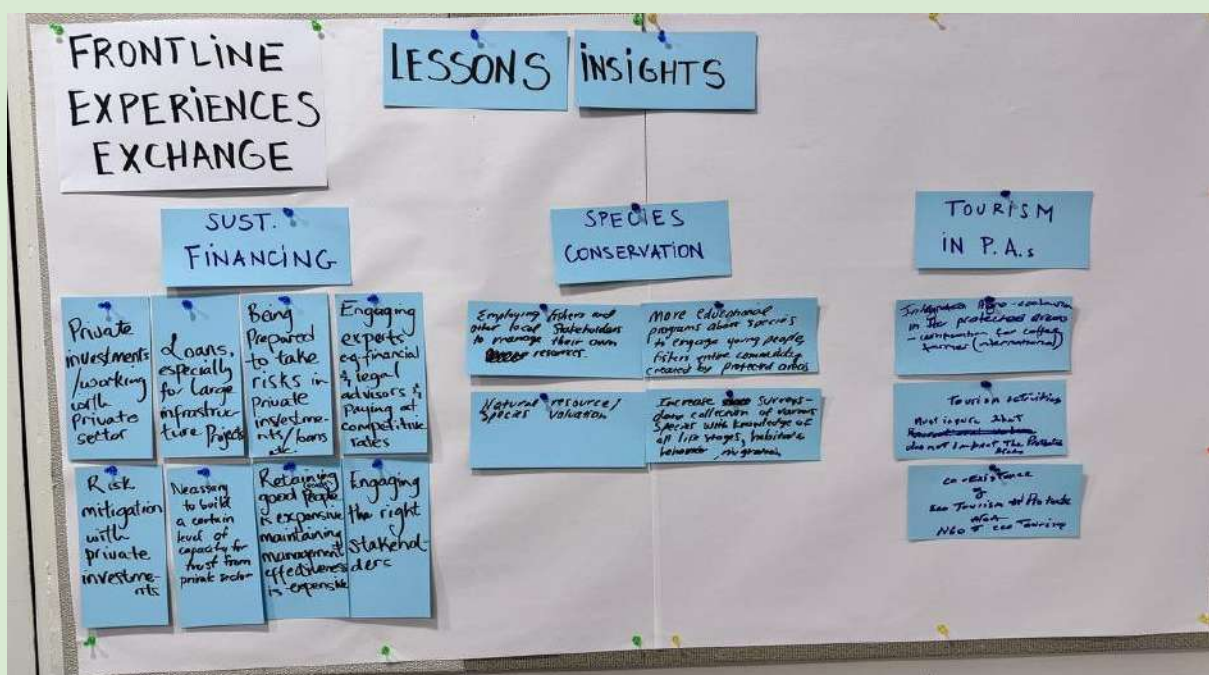 FRONTLINE
EXPERIENCES
EXCHANGE
LESSONS INSIGHTS
SUST.
FINANCING
Private
investments
/working
with
Private
sector
Loans,
especially
for large
infrastruc-
ture Projects
Being
Prepared
to take
risks in
Private
investme-
nts/loans
etc.
Engaging
experts
eg. financial
& legal
advisors &
Paying at
competitive
rates
Risk
mitigation
with
private
investme-
nts
Necessary
to build
a certain
level of
capacity for
trust from
private sector
Retaining
good People
is expensive
maintaining
management
effectiveness
is expensive
Engaging
the right
stakehol-
ders
SPECIES
CONSERVATION
Employing fishers and
other local Stakeholders
to manage their own
resources.
More educational
programs about species
to engage young people,
fishers entire community
created by protected areas
Natural resource/
Species valuation
Increase surveys-
data collection of various
Species with knowledge of
all life stages, habitat &
behavior, migration
TOURISM
IN P.A.s
in the protected areas
farmer (international)
Tourism activities
Must insure that
do not impact The Protected
Areas
co-existence
of
Eco Tourism
NGO & eco Tourism